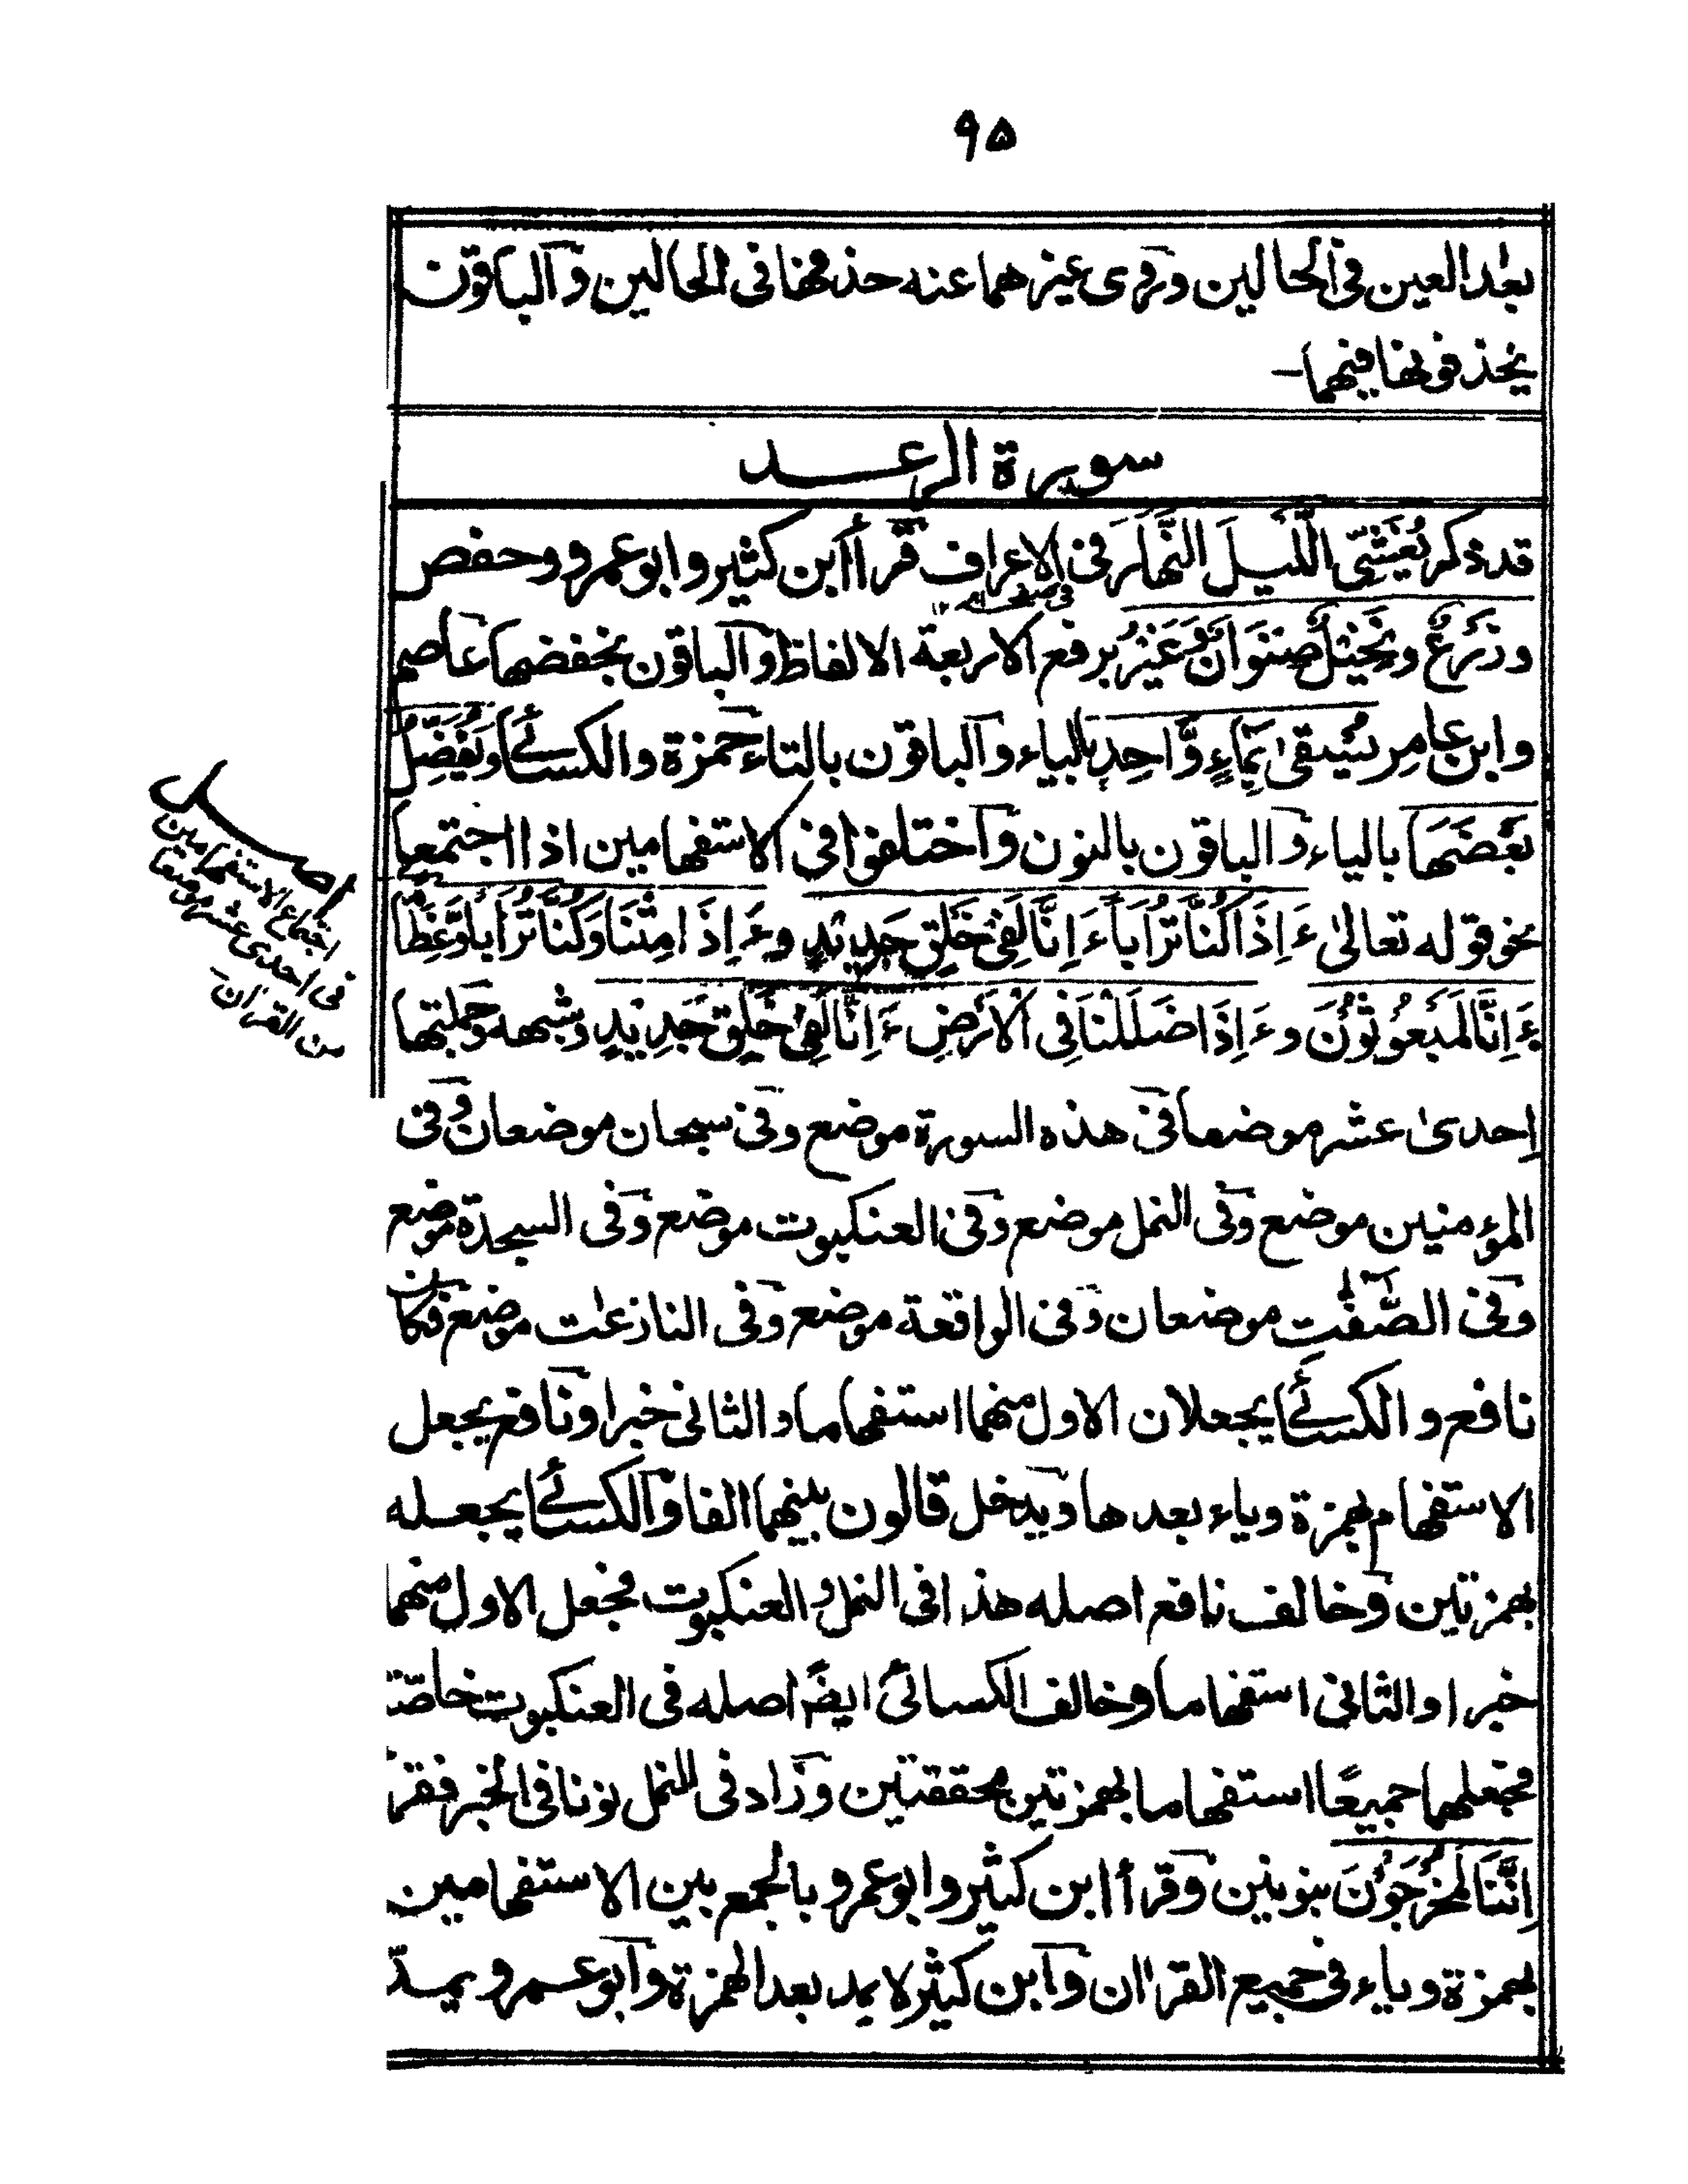 ٩۵
بعد العين فى الحالين وروى غيرهما عنه حذفها فى الحالين والباقون
يحذفونها فيهما-
سورة الرعد
قد ذكر يُغْشِى الَّيْلَ النَّهَارَ فى الاعراف قرأ ابن كثير وابو عمرو وحفص
وَزَرْعٌ وَنَخِيْلٌ صِنْوَانٌ وَغَيْرُ برفع الاربعة الالفاظ والباقون بخفضها عاصم
وابن عامر يُسْقىٰ بِمَاءٍ وَّاحِدٍ بالياء والباقون بالتاء حمزة والكسائى وَيُفَضِّلُ
بَعْضَهَا بالياء والباقون بالنون واختلفوا فى الاستفهامين اذا اجتمعا
نحو قوله تعالىٰ ءَاِذَا كُنَّا تُرَاباً ءَاِنَّا لَفِىْ خَلْقٍ جَدِيْدٍ وءَاِذَا مِتْنَا وَكُنَّا تُرَاباً وَّعِظَامًا
ءَاِنَّا لَمَبْعُوْثُوْنَ وءَاِذَا ضَلَلْنَا فِى الْاَرْضِ ءَاِنَّا لَفِىْ خَلْقٍ جَدِيْدٍ وشبهه وجملتها
اِحدىٰ عشر موضعا فى هذه السورة موضع وفى سبحان موضعان وفى
المؤمنين موضع وفى النمل موضع وفى العنكبوت موضع وفى السجدة موضع
وفى الصّٰفّٰت موضعان وفى الواقعة موضع وفى النازعٰت موضع فكان
نافع والكسائى يجعلان الاول منهما استفهاما والثانى خبرا ونافع يجعل
الاستفهام بهمزة وياء بعدها ويدخل قالون بينهما الفا والكسائى يجعله
بهمزتين وخالف نافع اصله هذا فى النمل والعنكبوت فجعل الاول منهما
خبرا والثانى استفهاما وخالف الكسائى ايضًا اصله فى العنكبوت خاصّة
فجعلهما جميعًا استفهاما بهمزتين محققتين وزاد فى النمل نونا فى الخبر فقرأ
اِنَّنَا لَمُخْرَجُوْنَ بنونين وقرأ ابن كثير وابو عمرو بالجمع بين الاستفهامين
بهمزة وياء فى جميع القراٰن وابن كثير لا يمد بعد الهمزة وابو عمرو يمدّ
اصل
اجتماع الاستفهامين
فى احدى عشر موضعا
من القراٰن